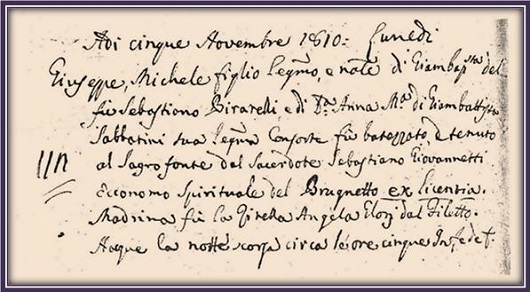 Adi cinque Novembre 1810: Lunedi
Giuseppe, Michele figlio Legmo, e nale di Giambapsta del
fù Sebastiano Birarelli, e di Da. Anna Ma. di Giambattista
Sabbatini sua Legma Consorte fù batezzato, e tenuto
al Sagro fonte dal Sacerdote Sebastiano Giovannetti
Economo Spirituale del Brugnetto ex licentia.
Madrina fù la Zitella Angela dal Filetto.
Naque la notte scorsa circa le ore cinque In fede